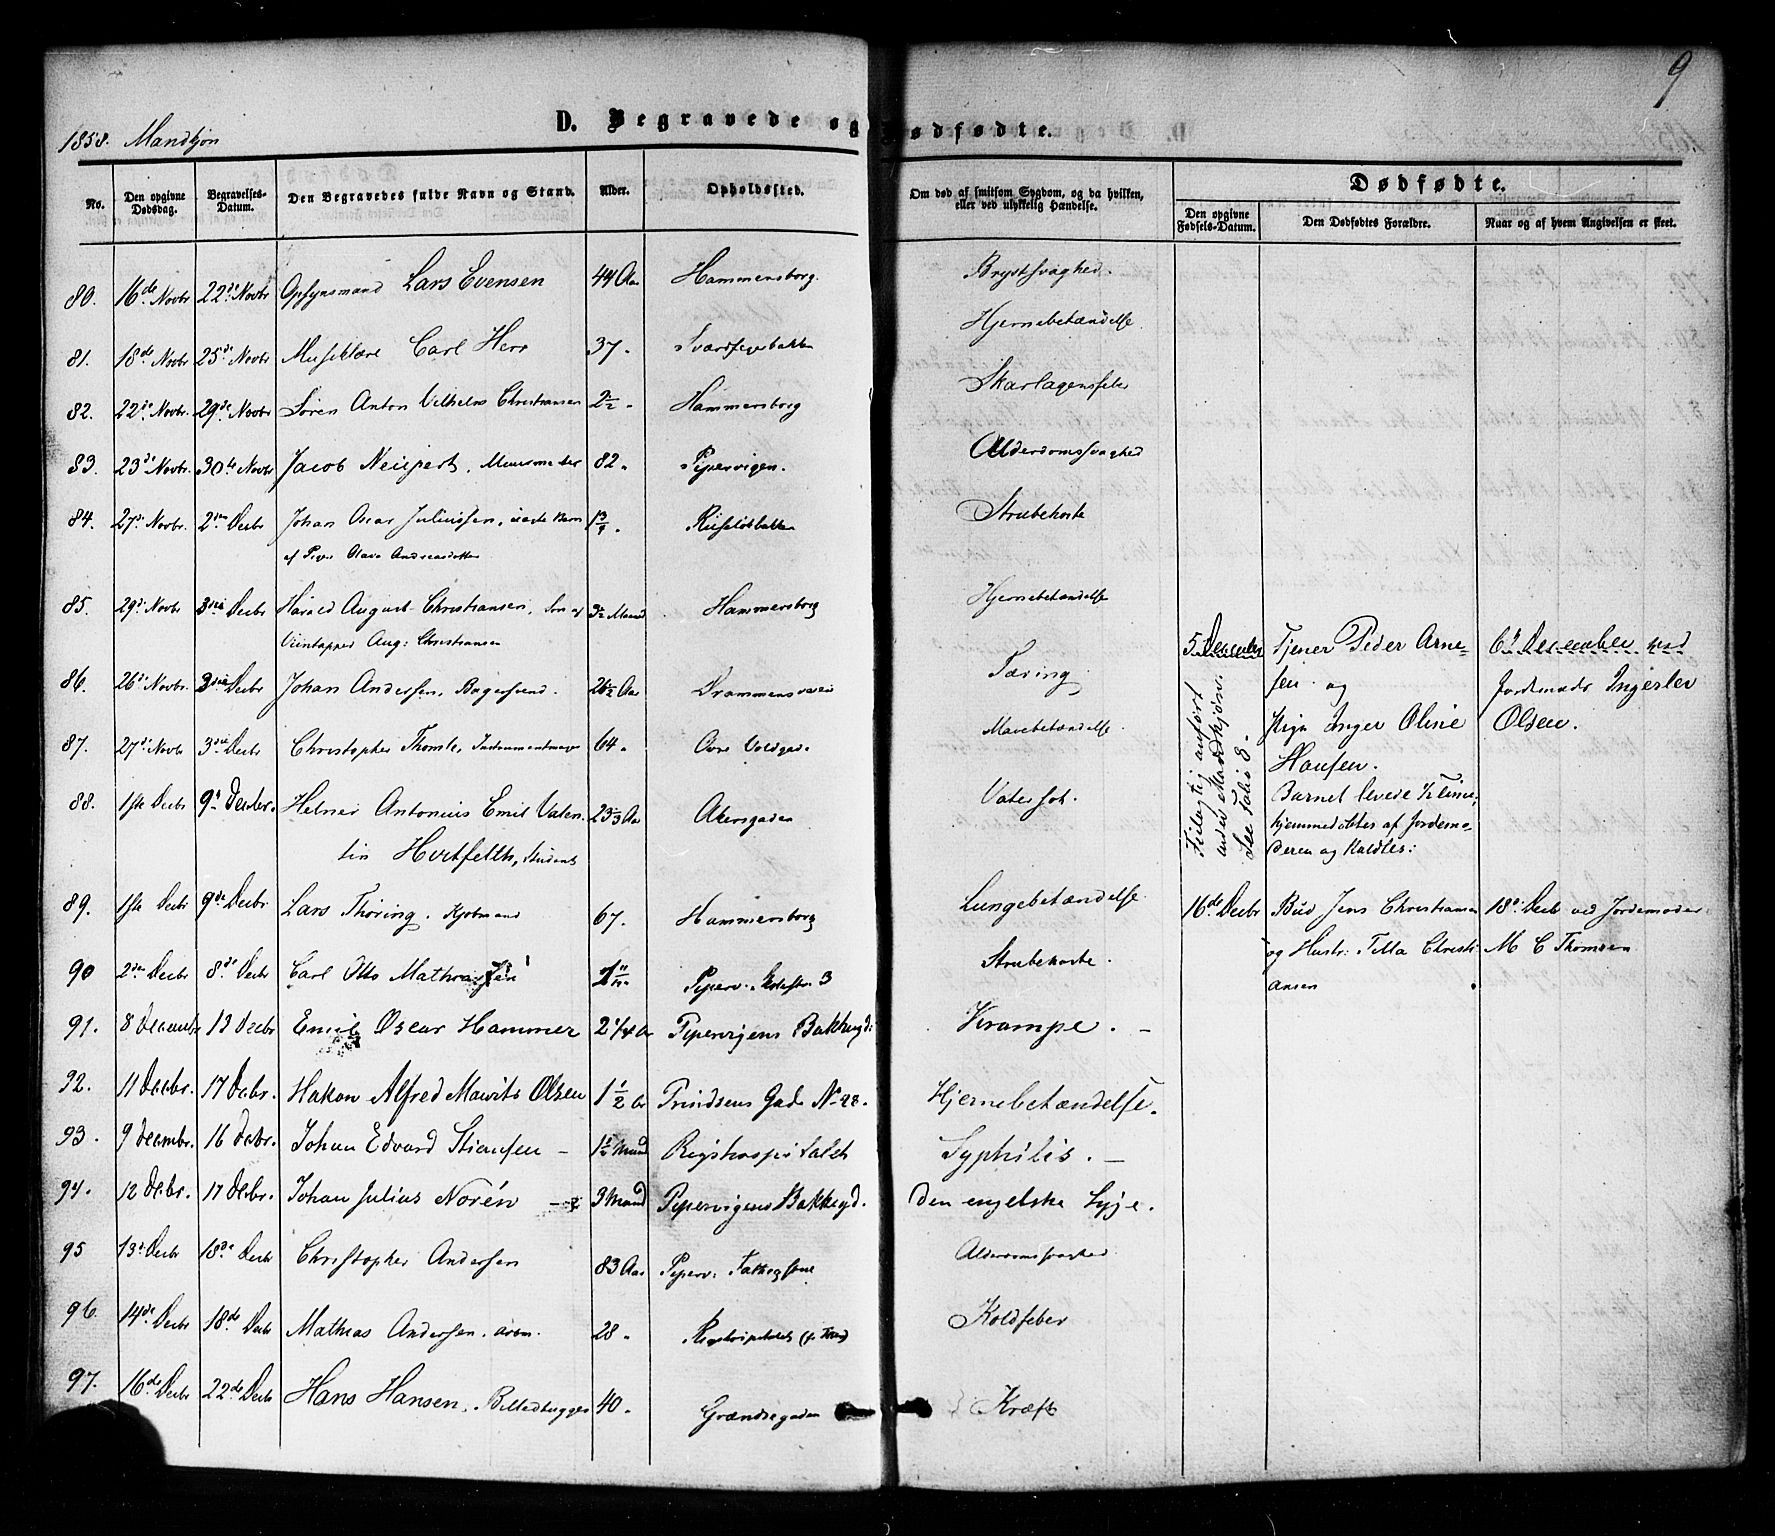 9
1858. Mandkjøn
D. Begravede og Dødfødte.
No. | Den opgivne Dødsdag. | Begravelses-Datum. | Den Begravedes fulde Navn og Stand. | Alder. | Opholdssted. | Om død af smitsom Sygdom, og da hvilken, eller ved ulykkelig Hændelse.
Dødfødte.
Den opgivne Fødsels-Datum. | Den Dødfødtes Forældre. | Naar og af hvem Angivelsen er skeet.
80. 16de Novbr 22de Novbr Opsynsmand Lars Evensen 44 Aar Hammersborg. Brystsvaghed.
81. 18de Novbr 25de Novbr Musiklære Carl Herr 37 " Sværdfegerbakken Hjernebetændelse
82. 22de Novbr. 29de Novbr Søren Anton Vilhelm Christiansen 2½ " Hammersborg Skarlagensfeber
83. 23de Novbr. 30te Novbr Jacob Neupert, Muurmester 82 " Pipervigen. Alderdomssvaghed
84. 27de Novbr. 2den Decbr Johan Oscar Juliussen, uægte Barn Ruseløkbakken Strubehoste
af Pige Olava Andreasdatter
85. 29de Novbr 3die Decbr Harald August Christiansen, Søn af 3½ Maaned Hammersborg Hjernebetændelse
Viintapper Aug: Christiansen
86. 26de Novbr. 3die Decbr Johan Andersen, Bagersvend 26½ Aar Drammensveien Tæring
87. 27de Novbr 3die Decbr Christopher Thomle, Instrumentmager 64 " Øvre Voldgade Mavebetændelse
88. 1ste Decbr 9de Decbr. Helmer Antonius Emil Valen- Aar Akersgaden Vatersot.
tin Hvitfeldt, Student
89. 1ste Decbr 9de Decbr Lars Thøring. Kjøbmand 67. Hammersborg Lungebetændelse
90 2den Decbr 8de Decbr Carl Otto Mathiassen Piperv. 3 Strubehoste.
91. 8 Decembr 13 Decbr Emil Oscar Hammer 2 1/4 Aar Pipervigens Bakkegd: Krampe. –
92. 11 Decbr. 17 Decbr. Hakon Alfred Mauritz Olsen 1 ½ Aar Prindsens Gade No 28. Hjernebetændelse.
93. 9 Decembr. 16 Decbr. Johan Edvard Stiansen – 1½ Maaned Rigshospitalet Syphilis. –
94. 12 Decbr. 17 Decbr. Johan Julius Norén – 3 Maaned Pipervigens Bakkegd. Den engelske Syge.
95 13de Decbr 18de Decbr Christopher Andersen 83 Aar Piperv: Alderdomssvaghed
96. 14de Decbr 18de Decbr Mathias Andersen. arbm. 28 " Rigshospitalet Koldfeber
97. 16de Decbr 22de Decbr Hans Hansen, Billedhugger 40 " Grændsegaden Kræft
5 December Tjener Peder Arne- 6te December ved
sen og Jordmoder Ingerlev
Pige Inger Oline Olsen.
Hansen.
Barnet levede ½ Time,
hjemmedøbtes af Jordemo-
deren og kaldtes:
Feilagtig anført
under Mandkjøn.
See Folio 8.
16de Decbr Bud Jens Christiansen 18de Decb ved Jordemoder
og Hustr: Tilla Christi- M C Thomsen
ansen